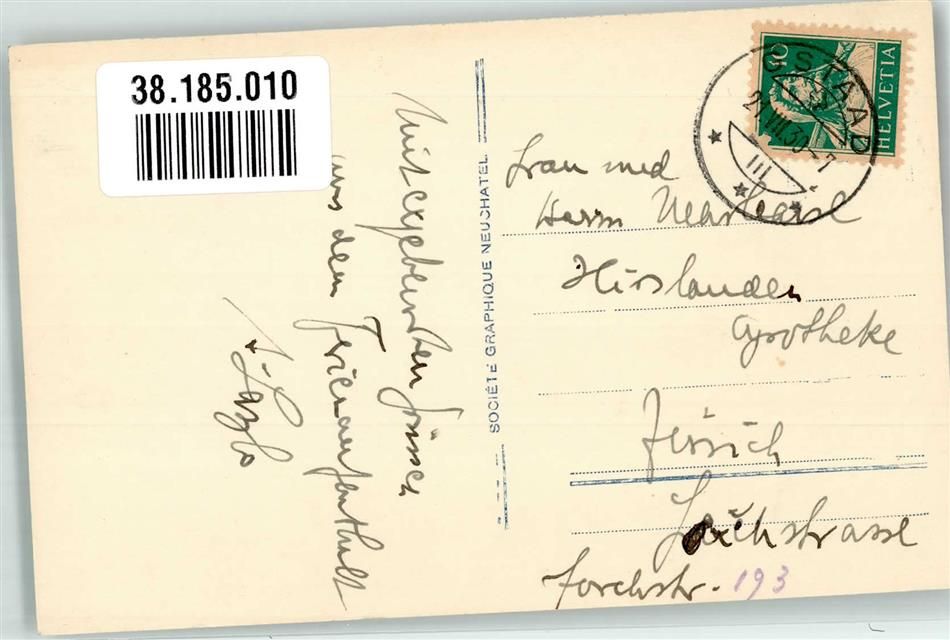 38.185.010
Mit ergebensten Grüssen
aus dem Ferienaufenthalt
Lazlo
SOCIÉTÉ GRAPHIQUE NEUCHATEL.
10
HELVETIA
GSTAAD
VIII.30-7
III
Frau und
Herrn
Hirslanden
Apotheke
Zürich
strasse
Forchstr. 193